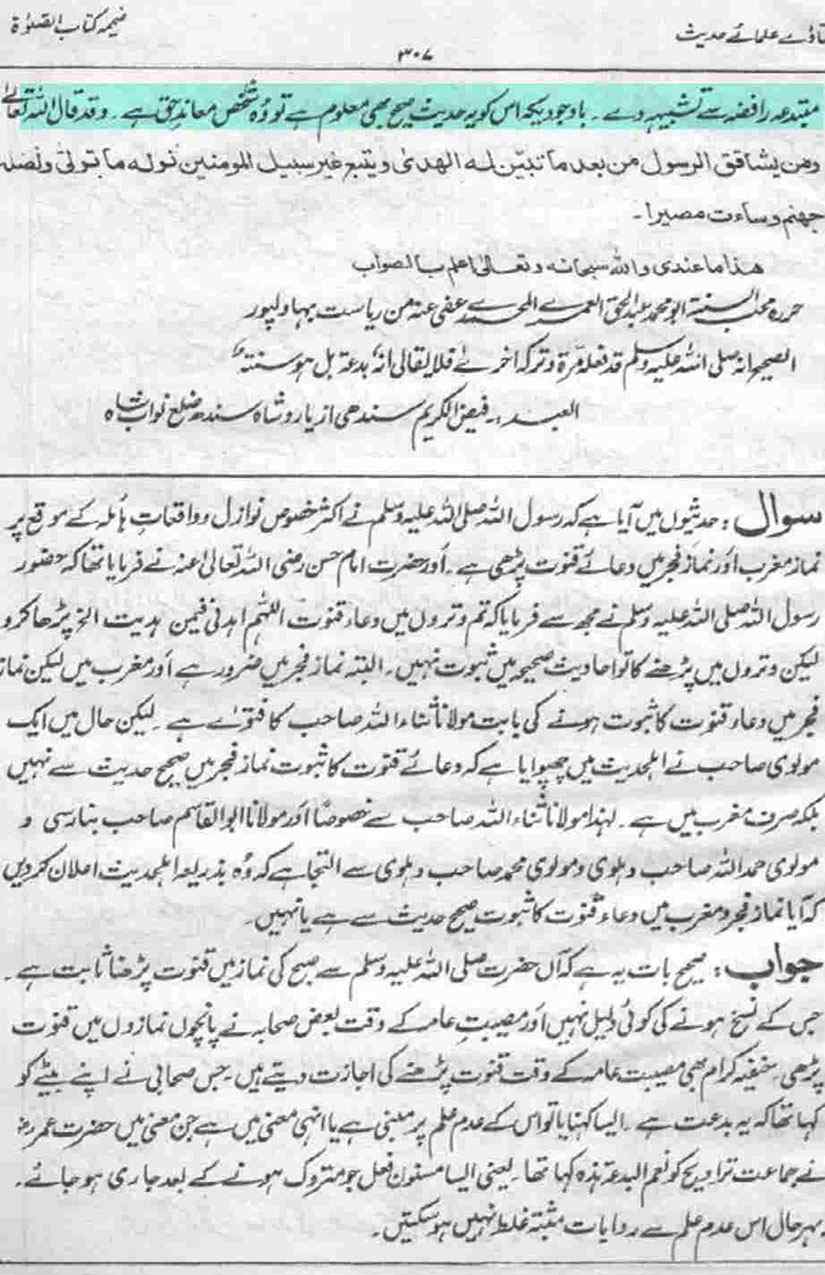 ضمیمہ کتاب الصلوٰۃ
۳۰۷
فتاوٰے علمائے حدیث
مبتدعہ رافضہ سے تشبیہہ دے ۔ باوجودیکہ اس کو یہ حدیث صحیح بھی معلوم ہے تو وُہ شخص معاندِ حق ہے ۔ وقد قال اللہ تعالےٰ
ومن یشاقق الرسول من بعد ما تبیّن لہ الھدیٰ ویتبع غیر سبیل المومنین نولہ ما تولیٰ ونصلہ
جھنم وساءت مصیرا۔
ھٰذا ما عندی واللہ سبحانہ وتعالیٰ اعلم بالصواب
حررہ محب السنۃ ابو محمد عبدالحق العمرے المحمدے عفی عنہ من ریاست بہاولپور
الصحیح انہ صلی اللہ علیہ وسلم قد فعلہ مرۃ وترکہ اخرےٰ فلا یقال انہ بدعۃ بل ھو سنتہ
العبد :۔ فیض الکریم سندھی از یارو شاہ سندھ ضلع نواب شاہ
سوال : حدثیوں میں آیا ہے کہ رسول اللہ صلی اللہ علیہ وسلم نے اکثر خصوص نوازل وواقعاتِ ہائلہ کے موقع پر
نماز مغرب اَور نماز فجر میں دعائے قنوت پڑھی ہے ۔ اَور حضرت امام حسن رضی اللہ تعالیٰ عنہ نے فرمایا تھا کہ حضور
رسول اللہ صلی اللہ علیہ وسلم نے مجھ سے فرمایا کہ تم وتروں میں دعاء قنوت اللّٰھم اھدنی فیمن ھدیت الخ پڑھا کرو
لیکن وتروں میں پڑھنے کا تو احادیث صحیحہ میں ثبوت نہیں ۔ البتہ نماز فجر میں ضرور ہے اَور مغرب میں لیکن نماز
فجر میں دعاء قنوت کا ثبوت ہونے کی بابت مولانا ثناء اللہ صاحب کا فتوٰے ہے ۔ لیکن حال میں ایک
مولوی صاحب نے اہلحدیث میں چھپوایا ہے کہ دعائے قنوت کا ثبوت نماز فجر میں صحیح حدیث سے نہیں
بلکہ صرف مغرب میں ہے ۔ لہٰذا مولانا ثناء اللہ صاحب سے خصوصًا اَور مولانا ابوالقاسم صاحب بنارسی و
مولوی حمد اللہ صاحب دہلوی و مولوی محمد صاحب دہلوی سے التجا ہے کہ وُہ بذریعہ اہلحدیث اعلان کردیں
کہ آیا نماز فجر و مغرب میں دعاء قنوت کا ثبوت صحیح حدیث سے ہے یا نہیں۔
جواب : صحیح بات یہ ہے کہ آں حضرت صلی اللہ علیہ وسلم سے صبح کی نماز میں قنوت پڑھنا ثابت ہے ۔
جس کے نسخ ہونے کی کوئی دلیل نہیں اَور مصیبتِ عامہ کے وقت بعض صحابہ نے پانچوں نمازوں میں قنوت
پڑھی ۔ حنفیہ کرام بھی مصیبت عامہ کے وقت قنوت پڑھنے کی اجازت دیتے ہیں ۔ جس صحابی نے اپنے بیٹے کو
کہا تھا کہ یہ بدعت ہے ۔ ایسا کہنا یا تو اس کے عدم علم پر مبنی ہے یا انہی معنی میں ہے جن معنی میں حضرت عمر رضؓ
نے جماعت تراویح کو نعم البدعۃ ہٰذہ کہا تھا ۔ یعنی ایسا مسنون فعل جو متروک ہونے کے بعد جاری ہو جائے ۔
بہر حال اس عدم علم سے روایات مثبتہ غلط نہیں ہو سکتیں ۔